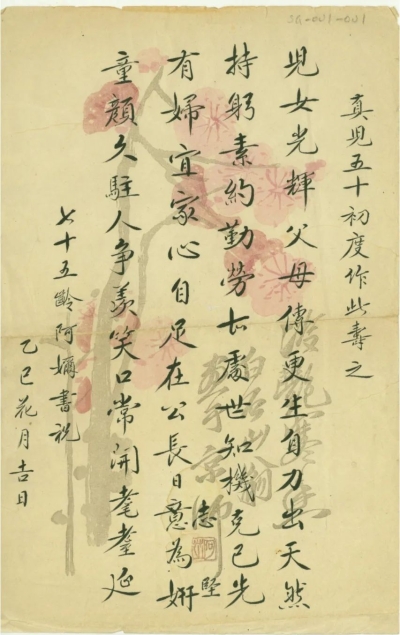 SG-001-001
真兒五十初度作此壽之
兒女光輝父母傳更生自力出天然
持躬素約勤勞處世知機克己先
有婦宜家心自足在公長日意為妍
童顏久駐人爭羨笑口常開耄耋延
志堅
七十五齡阿嬭書祝
乙巳花月吉日